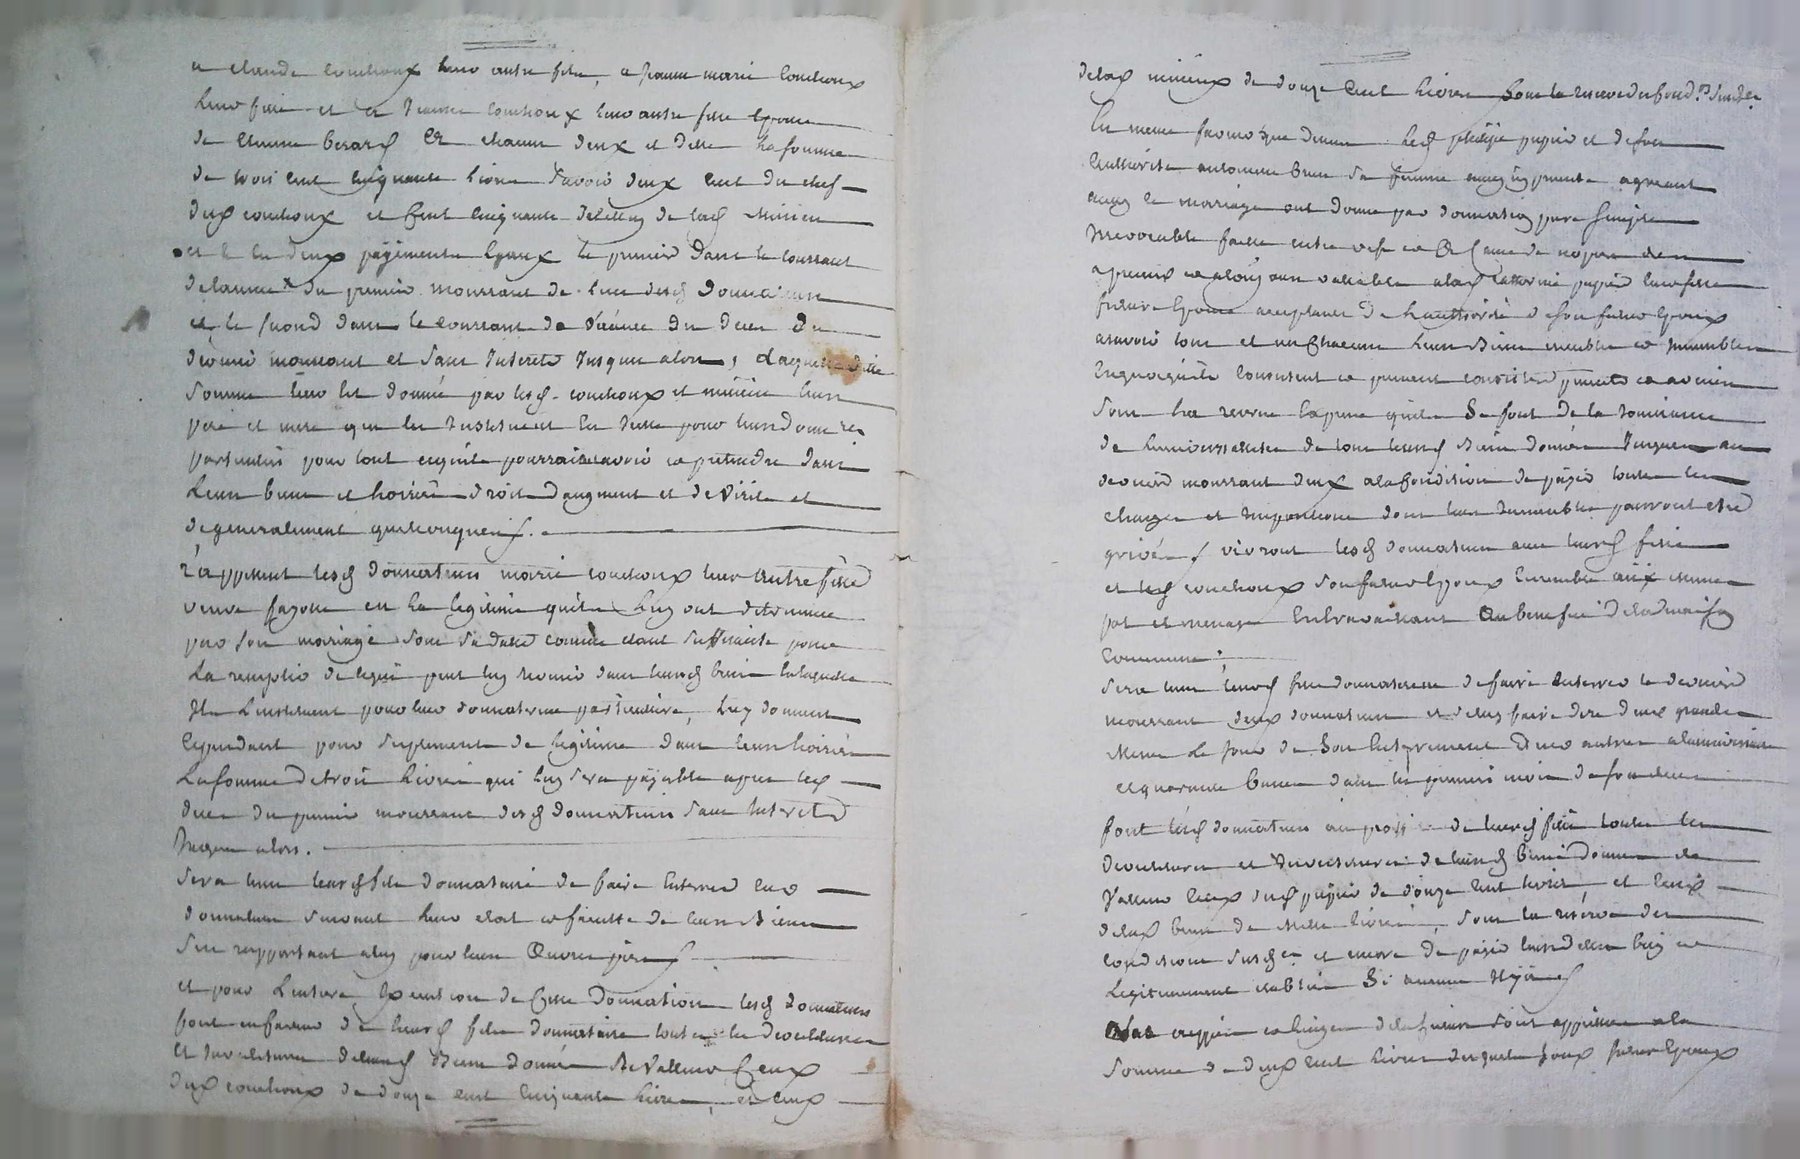 a claude couchoux leur autre fils, a jeanne marie couchoux
leur fille et a jeanne couchoux leur autre fille epouse
de etienne berard et chacun deux et delle la somme
de trois cent cinquante livres savoir deux cent du chef
dud couchoux et cent cinquante de celluy de lad miniere
et ce en deux payements egaux le premier dans le courrant
de lannee du premier mourrant de leurs desd donnateurs
et le second dans le courrant de l'année du deces du
dernier mourrant et sans interets jusques alors, laquelle ditte
somme leur est donnée par lesd couchoux et miniere leurs
pere et mere qui les instituent en icelle pour leurs donnataires
particuliers pour tout ce quils pourraient avoir et pretendre dans
leurs biens et hoirie droit d'augment et de virile et
de generalement quelconques.
rappellent lesd donnateurs marie couchoux leur autre fille
veuve fayolle en la legitime quils luy ont determinée
par son mariage sous sa datte comme etant suffisante pour
la remplir de ce qui peut luy revenir dans leursd biens en laquelle
ils linstituent pour leur donnataire particuliere, luy donnent
cependant pour suplement de legitime dans leurs hoiries
la somme de trois livres qui luy sera payable apres le
deces du premier mourrant desd donnateurs sans interets
jusques alors.
sera tenu leurd fils donnataire de faire enterrer les
donnateurs suivant leur etat et faculté de leurs biens
sen rapportant a luy pour leurs œuvres pies
et pour lentiere execution de cette donnation lesd donnateurs
font en faveur de leurd fils donnataire toutes les devetitures
et investitures de leursd biens donnés de valleur ceux
dud couchoux de douze cent cinquante livres, et ceux
de lad miniere de douze cent livres sous la reserve des fonds
En meme faveur que dessus led papier et de son
authorité antoinette sa femme aussy presente agreant
aussy ce mariage ont donné par donnation pure simple
irrevocable faite entre vifs et a cause de noces des
a present et a toujours vallable a lad catherine papier leur fille
future epouse acceptante de lauthorité de son futur epoux
assavoir tous et un chacuns leurs biens meubles et immeubles
en quoy quils consistent et puissent consister presents et a venir
sous la reserve expresse quils se font de la jouissance
de luniversalité de tous leursd biens donnés jusques au
dernier mourrant deux a la condition de payer toutes les
charges et impositions dont leurs immeubles pourront etre
grevés, vivront lesd donnateurs avec leurd fille
et led couchoux son futur epoux ensemble aux memes
pot et menage en travaillant au benefice de la maison
commune;
sera tenue leurd fille donnataire de faire enterrer le dernier
mourrant deux donnateurs et de luy faire dire deux grandes
messes le jour de son enterrement deux autres a lanniversaire
et quarante basses dans les premiers mois de son deces
font lesd donnateurs au profit de leurd fille toutes les
devetitures et investitures de leursd biens donnés de
valleur ceux dud papier de douze cent livres et ceux
de lad de mille livres, sous la reserve des
conditions susd et encore de payer leurs dettes bien et
legitimement etablies si aucunes il y a
Les nippes et linges de la future sont apprecies a la
somme de deux cent livres desquels led futur epoux